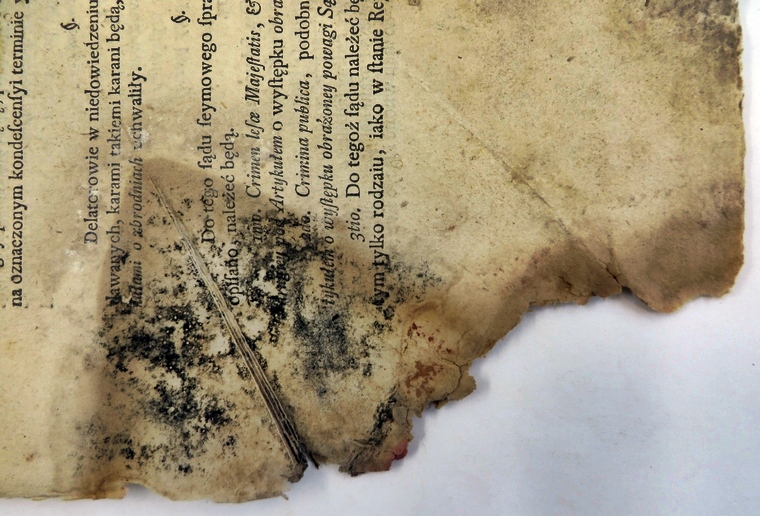 na oznaczonym kondeſcenſyi terminie
§.
Delatorowie w niedowiedzeniu
karami takiemi karani będą,
o zbrodniach uchwaliły.
§.
Do tego ſądu ſeymowego ſpra
opiſano, należeć będą.
Crimen leſæ Majeſtatis, &
Artykułem o wyſtępku obra
Crimina publica, podobn
tykułem o wyſtępku obrażoney powagi Są
3tio. Do tegoż ſądu należeć bę
tym tylko rodzaiu, iako w ſtanie Re